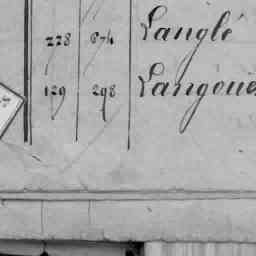 228 674 Langlé
129 298 Langoue